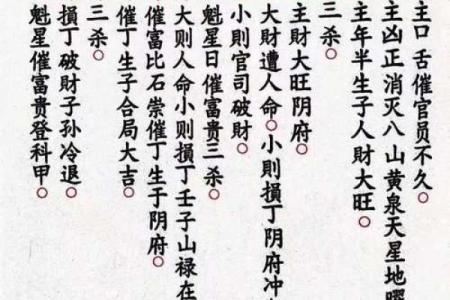 主口舌催官员不久。
主凶正消灭八山黄泉天星地曜
主年半生子人财大旺。
三杀。
主財大旺阴府。
大財遭人命。小則損丁阴府冲
小則官司破財。
魁星日催富貴三杀。
大则人命小则損丁壬子山禄在
催富比石崇催丁生于阴府。
催丁生子合局大吉。
三杀。
損丁破財子孙冷退。
魁星催富贵登科甲。